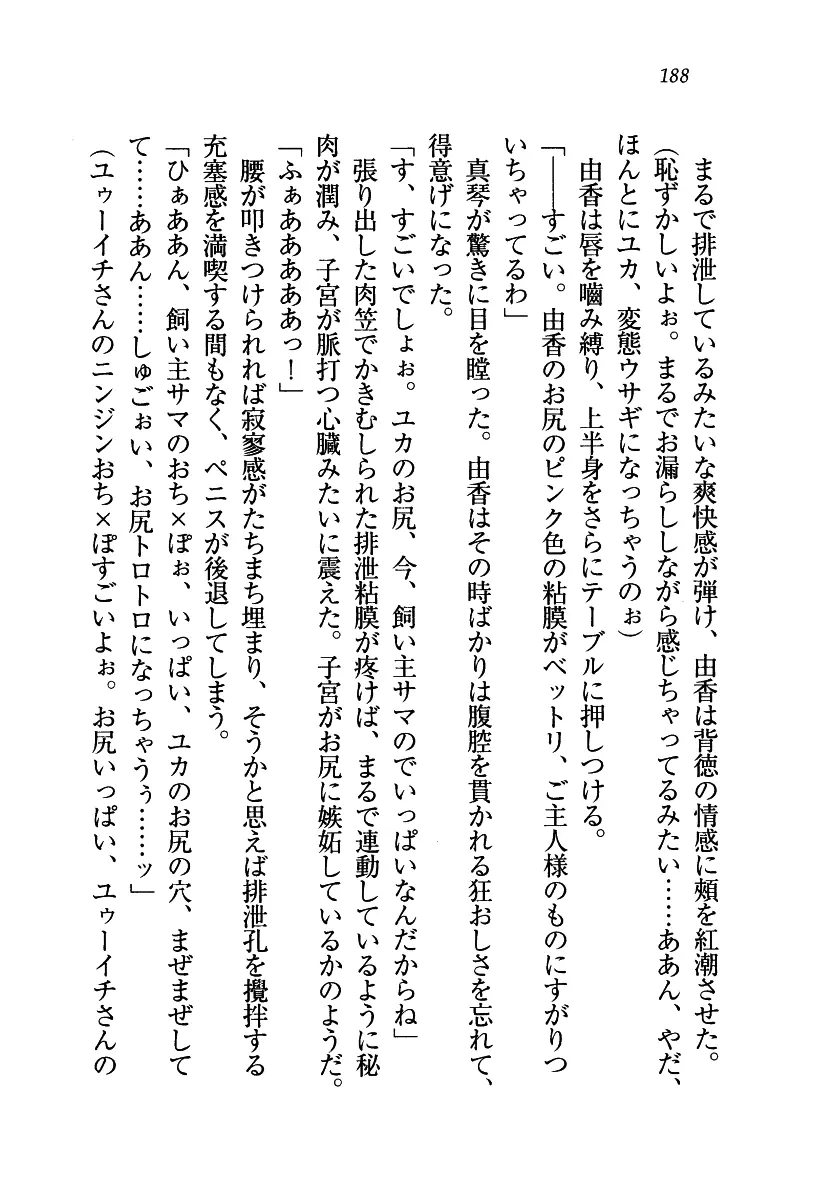 188
まるで排泄しているみたいな爽快感が弾け、由香は背徳の情感に頰を紅潮させた。
(恥ずかしいよぉ。まるでお漏らししながら感じちゃってるみたい……ああん、やだ、
ほんとにユカ、変態ウサギになっちゃうのぉ)
由香は唇を嚙み縛り、上半身をさらにテーブルに押しつける。
「――すごい。由香のお尻のピンク色の粘膜がベットリ、ご主人様のものにすがりつ
いちゃってるわ」
真琴が驚きに目を瞠った。由香はその時ばかりは腹腔を貫かれる狂おしさを忘れて、
得意げになった。
「す、すごいでしょぉ。ユカのお尻、今、飼い主サマのでいっぱいなんだからね」
張り出した肉笠でかきむしられた排泄粘膜が疼けば、まるで連動しているように秘
肉が潤み、子宮が脈打つ心臓みたいに震えた。子宮がお尻に嫉妬しているかのようだ。
「ふぁああああぁっ！」
腰が叩きつけられれば寂寥感がたちまち埋まり、そうかと思えば排泄孔を攪拌する
充塞感を満喫する間もなく、ペニスが後退してしまう。
「ひぁああん、飼い主サマのおち×ぽぉ、いっぱい、ユカのお尻の穴、まぜまぜして
て……ああん……しゅごぉい、お尻トロトロになっちゃうぅ……ッ」
(ユゥーイチさんのニンジンおち×ぽすごいよぉ。お尻いっぱい、ユゥーイチさんの